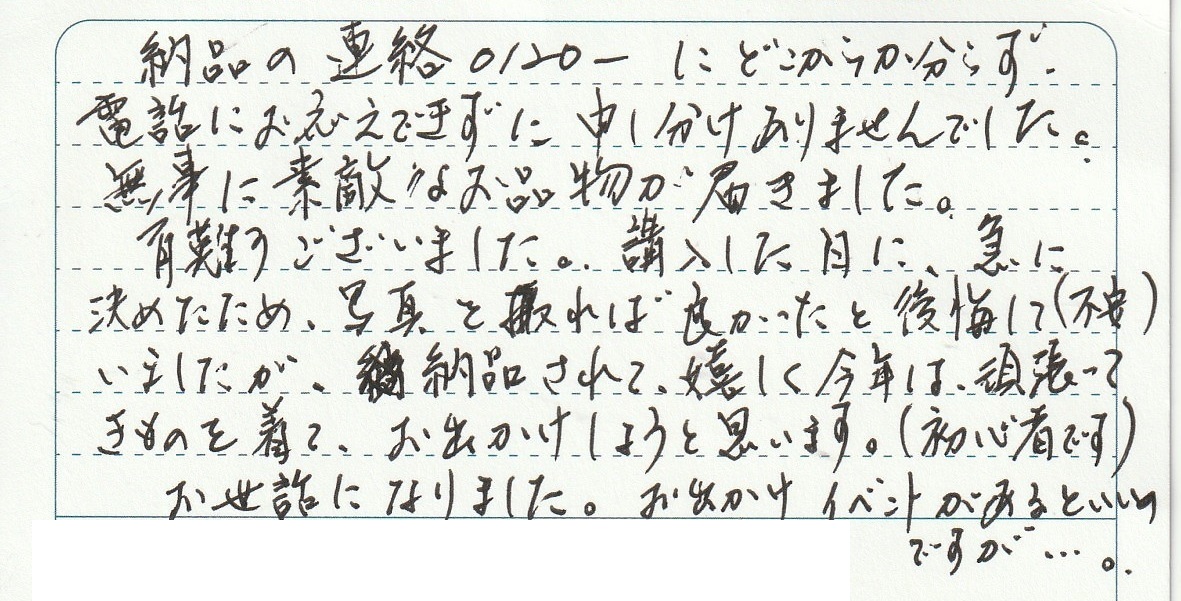 納品の連絡0120ーにどこからか分らず、
電話にお応えできずに申し分けありませんでした。
無事に素敵なお品物が届きました。
有難うございました。講入した日に、急に
決めたため、写真を撮れば良かったと後悔して(不安)
いましたが、納品されて、嬉しく今年は、頑張って
きものを着て、お出かけしようと思います。(初心者です)
お世話になりました。お出かけイベントがあるといいの
ですが…。